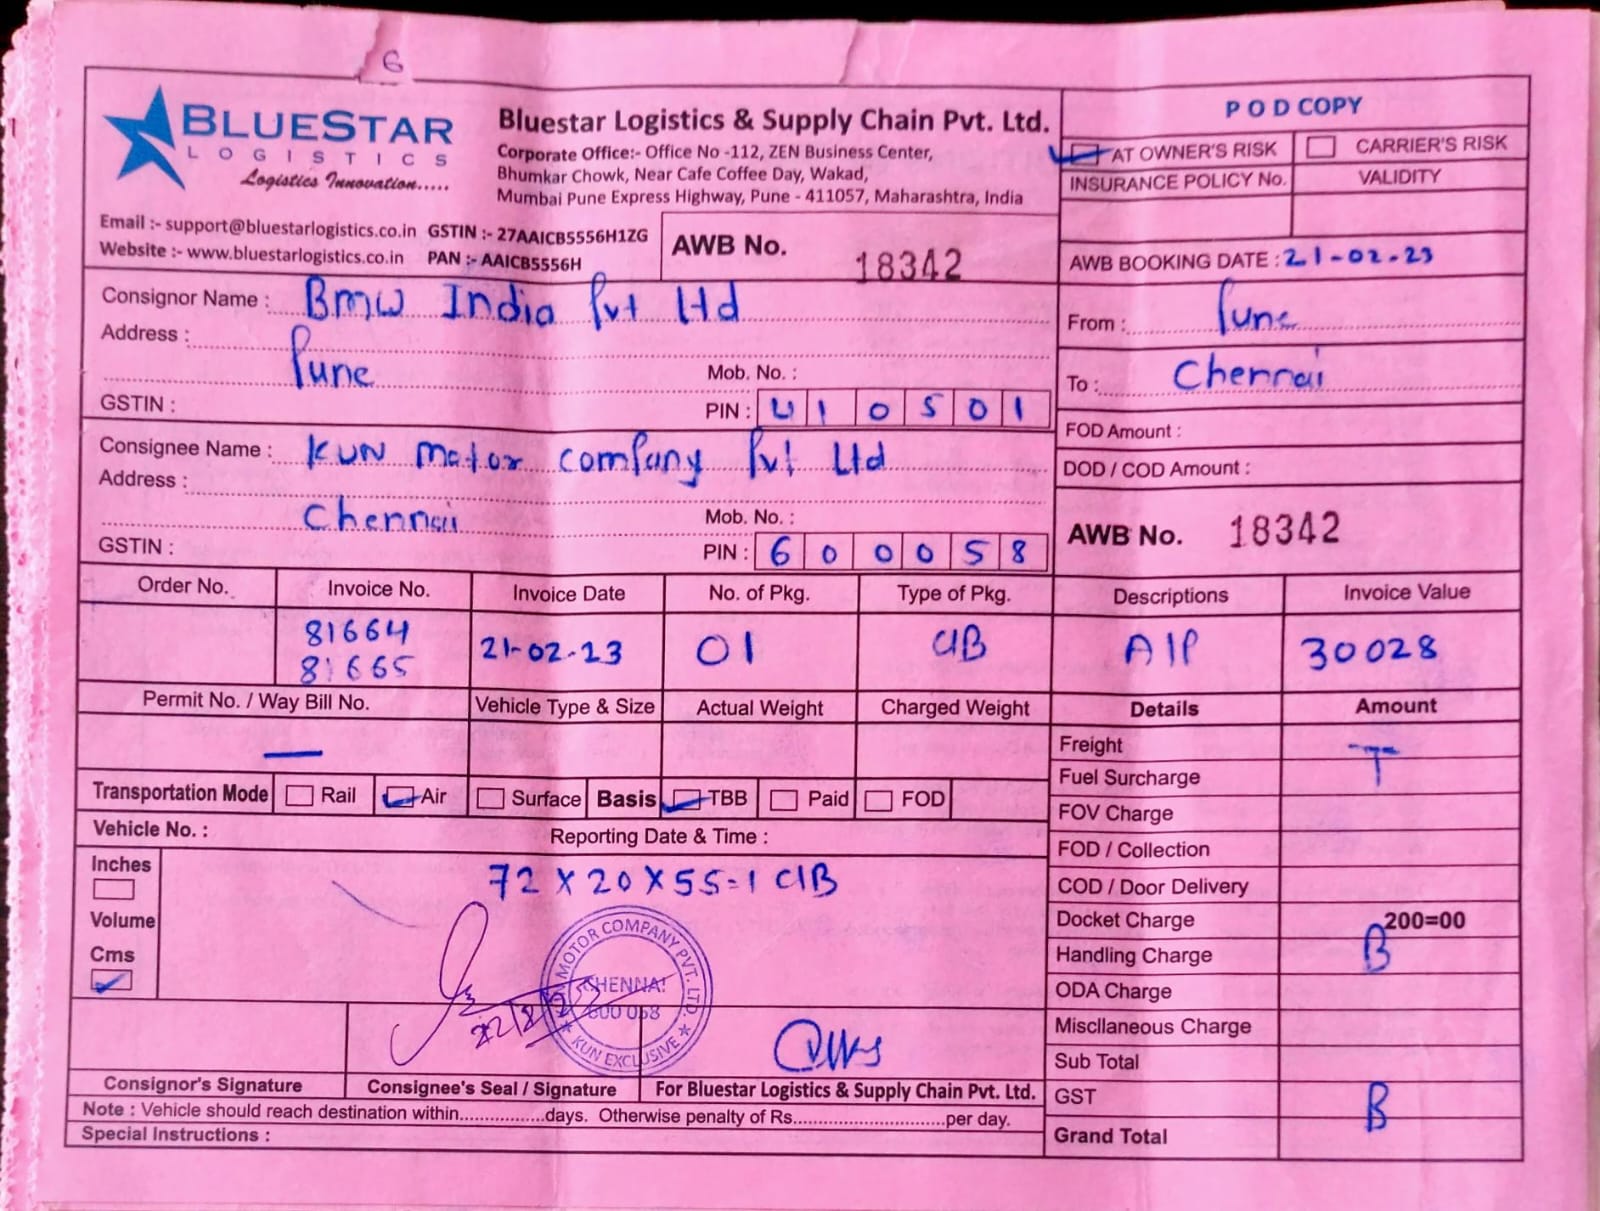 6
BLUESTAR
LOGISTICS
Logistics Innovation.....
Bluestar Logistics & Supply Chain Pvt. Ltd.
Corporate Office:- Office No -112, ZEN Business Center,
Bhumkar Chowk, Near Cafe Coffee Day, Wakad,
Mumbai Pune Express Highway, Pune - 411057, Maharashtra, India
Email :- support@bluestarlogistics.co.in GSTIN :- 27AAICB5556H1ZG
Website :- www.bluestarlogistics.co.in PAN :- AAICB5556H
AWB No. 18342
POD COPY
AT OWNER'S RISK CARRIER'S RISK
INSURANCE POLICY No. VALIDITY
AWB BOOKING DATE : 21-02-23
Consignor Name : BMW India Pvt Ltd
Address :
Pune
Mob. No. :
GSTIN : PIN : 410501
From : Pune
To : Chennai
Consignee Name : KUN Motor Company Pvt Ltd
Address :
Chennai
Mob. No. :
GSTIN : PIN : 600058
FOD Amount :
DOD / COD Amount :
AWB No. 18342
Order No. Invoice No. Invoice Date No. of Pkg. Type of Pkg. Descriptions Invoice Value
81664
81665 21-02-23 01 C/B A/P 30028
Permit No. / Way Bill No. Vehicle Type & Size Actual Weight Charged Weight Details Amount
—
Transportation Mode Rail Air Surface Basis TBB Paid FOD
Vehicle No. : Reporting Date & Time :
Inches
Volume
Cms
72 X 20 X 55=1 C/B
Freight
T
Fuel Surcharge
FOV Charge
FOD / Collection
COD / Door Delivery
Docket Charge 200=00
Handling Charge B
ODA Charge
Miscllaneous Charge
Sub Total
GST B
Grand Total
MOTOR COMPANY PVT. LTD.
CHENNAI
600 058
★ KUN EXCLUSIVE ★
Consignor's Signature Consignee's Seal / Signature For Bluestar Logistics & Supply Chain Pvt. Ltd.
Note : Vehicle should reach destination within.................days. Otherwise penalty of Rs..............................per day.
Special Instructions :